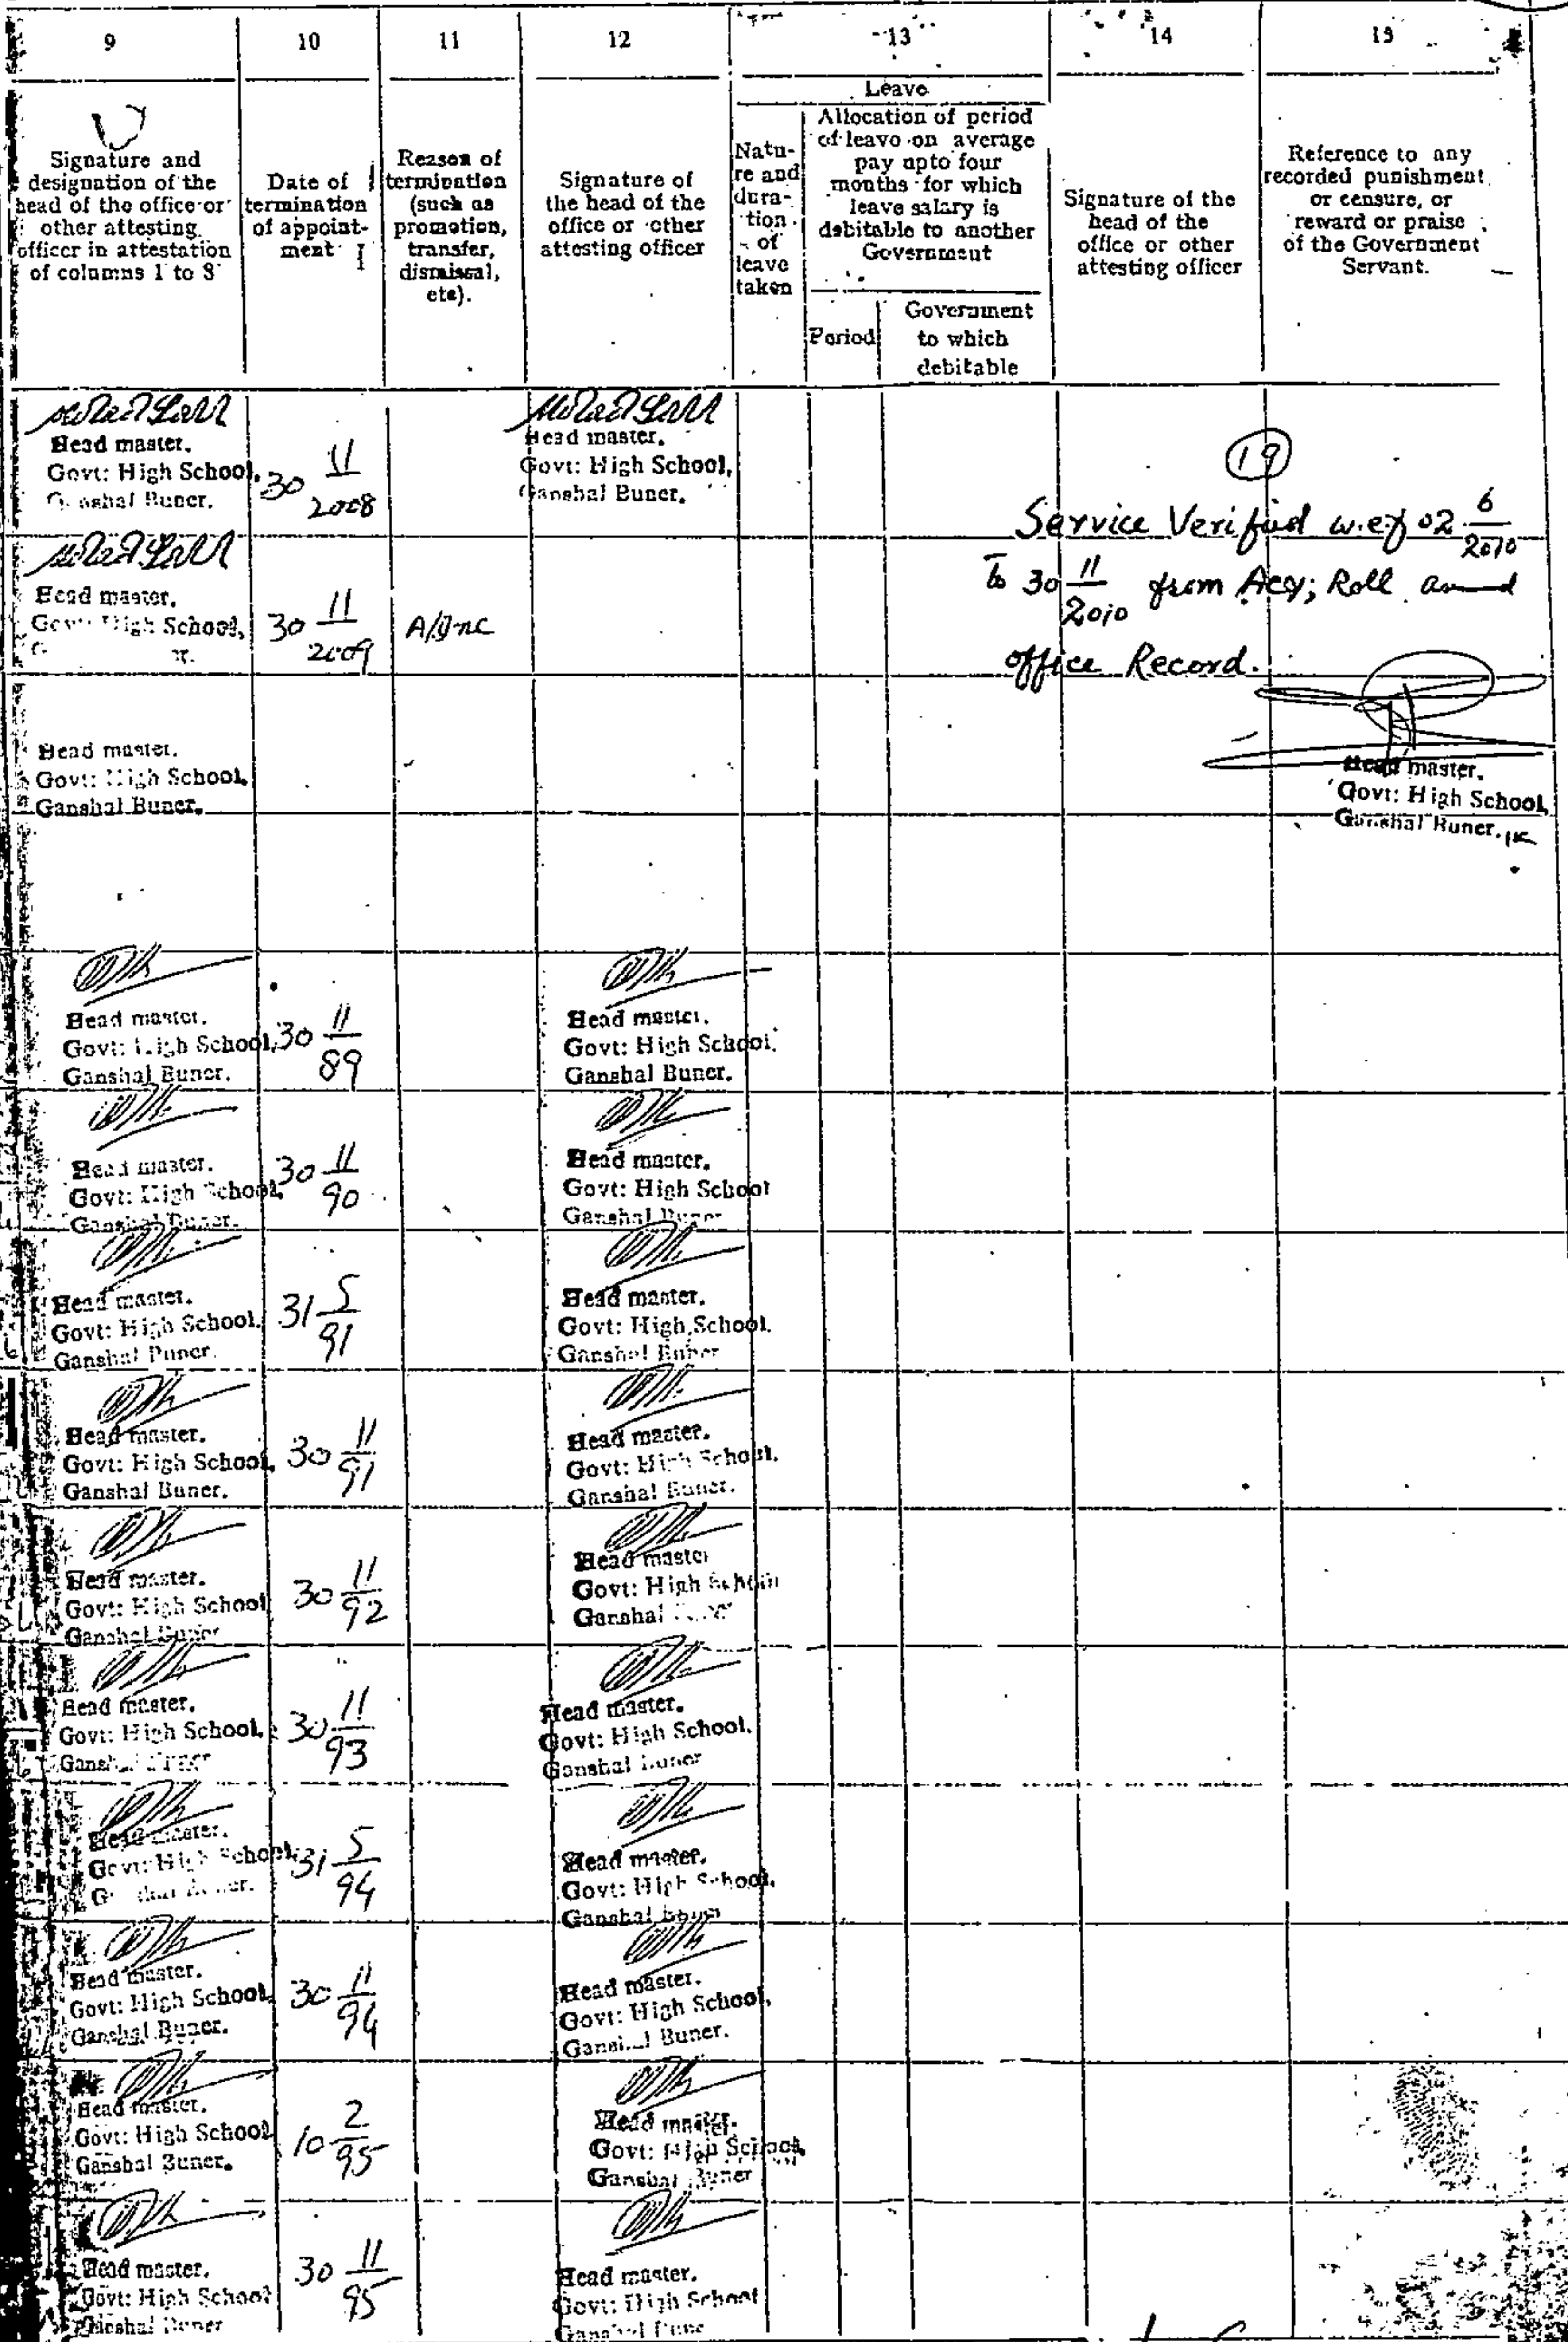 9 10 11 12 13 14 15
Leave
Signature and
designation of the
head of the office or
other attesting
officer in attestation
of columns 1 to 8
Date of
termination
of appoint-
ment
Reason of
termination
(such as
promotion,
transfer,
dismissal,
etc).
Signature of
the head of the
office or other
attesting officer
Natu-
re and
dura-
tion
of
leave
taken
Allocation of period
of leave on average
pay upto four
months for which
leave salary is
debitable to another
Government
Period
Government
to which
debitable
Signature of the
head of the
office or other
attesting officer
Reference to any
recorded punishment
or censure, or
reward or praise
of the Government
Servant.
Head master.
Govt: High School,
Buner.
30 11/2008
Head master.
Govt: High School,
Ganshal Buner.
19
Service Verified w.ef 02 6/2010
To 30 11/2010 from Acq; Roll and
office Record.
Head master.
Govt: High School,
Ganshal Buner.
Head master.
Govt: High School,
30 11/2009
A/Inc
Head master.
Govt: High School,
Ganshal Buner.
Head master.
Govt: High School,
Ganshal Buner.
30 11/89
Head master.
Govt: High School.
Ganshal Buner.
Head master.
Govt: High School,
Ganshal Buner.
30 11/90
Head master.
Govt: High School
Ganshal Buner
Head master.
Govt: High School,
Ganshal Buner.
31 5/91
Head master.
Govt: High School.
Ganshal Buner
Head master.
Govt: High School,
Ganshal Buner.
30 11/91
Head master.
Govt: High School.
Ganshal Buner.
Head master.
Govt: High School
Ganshal Buner
30 11/92
Head master
Govt: High School
Ganshal
Head master.
Govt: High School.
30 11/93
Head master.
Govt: High School.
Ganshal Buner
Head master.
Govt: High School,
31 5/94
Head master.
Govt: High School.
Ganshal Buner
Head master.
Govt: High School,
Ganshal Buner.
30 11/94
Head master.
Govt: High School,
Ganshal Buner.
Head master.
Govt: High School
Ganshal Buner.
10 2/95
Head master.
Govt: High School,
Ganshal Buner
Head master.
Govt: High School
Ganshal Buner
30 11/95
Head master.
Govt: High School